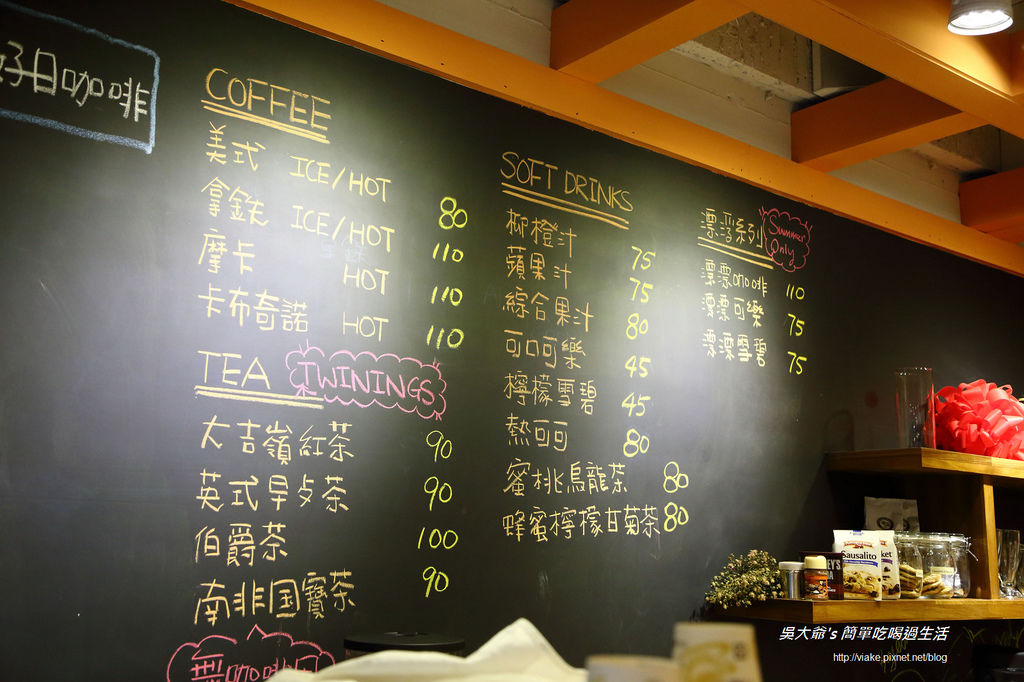 好日咖啡
COFFEE
美式 ICE/HOT 80
拿鉄 ICE/HOT 110
摩卡 HOT 110
卡布奇諾 HOT 110
TEA TWININGS
大吉嶺紅茶 90
英式早歺茶 90
伯爵茶 100
南非国寶茶 90
無咖啡因
SOFT DRINKS
柳橙汁 75
蘋果汁 75
綜合果汁 80
可口可樂 45
檸檬雪碧 45
熱可可 80
蜜桃烏龍茶 80
蜂蜜檸檬甘菊茶 80
漂浮系列 Summer Only
漂漂咖啡 110
漂漂可樂 75
漂漂雪碧 75
Sausalito
吳大爺's 簡單吃喝過生活
http://viake.pixnet.net/blog